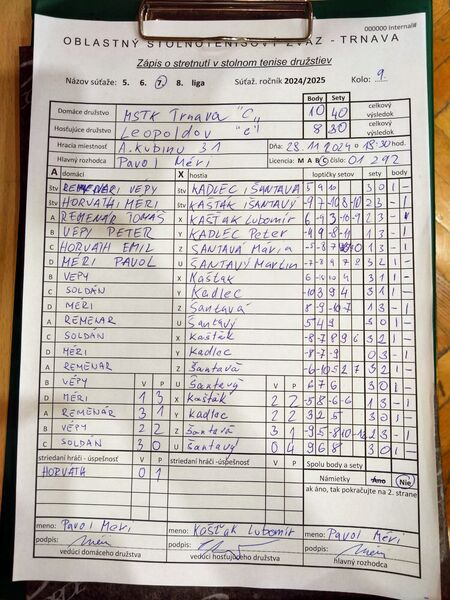 000000 internal#
OBLASTNÝ STOLNOTENISOVÝ ZVÄZ - TRNAVA
Zápis o stretnutí v stolnom tenise družstiev
Názov súťaže: 5. 6. 7. 8. liga Súťaž. ročník 2024/2025 Kolo: 9
Body Sety
Domáce družstvo MSTK Trnava "C" 10 40 celkový výsledok
Hosťujúce družstvo Leopoldov "C" 8 30 celkový výsledok
Hracia miestnosť A. Kubinu 31 Dňa: 28.11.2024 o 18:30 hod.
Hlavný rozhodca Pavol Méri Licencia: M A B C číslo: 01 292
A domáci X hostia loptičky setov sety body
štv REMENÁR, VÉPY štv KADLEC, ŠANTAVÁ 5 9 10 3 0 1 -
štv HORVÁTH, MÉRI štv KAŠŤÁK, ŠANTAVÝ 2 3 - 1
A REMENÁR TOMÁŠ X KAŠŤÁK Lubomír
B VÉPY PETER Y KADLEC Peter 1 3 - 1
C HORVÁTH EMIL Z ŠANTAVÁ Mária 1 3 - 1
D MÉRI PAVOL U ŠANTAVÝ Martin 3 2 1 -
B VÉPY X Kašťák 3 1 1 -
C SOLDÁN Y Kadlec -10 3 9 4 3 1 1 -
D MÉRI Z Šantavá 1 3 - 1
A REMENÁR U Šantavý 5 4 9 3 0 1 -
C SOLDÁN X Kašťák -8 -7 8 9 6 3 2 1 -
D MÉRI Y Kadlec -8 -7 -9 0 3 - 1
A REMENÁR Z Šantavá -6 -10 5 2 7 3 2 1 -
B VÉPY V P U Šantavý V P 6 7 6 3 0 1 -
D MÉRI 1 3 X Kašťák 2 2 -5 8 -6 -6 1 3 - 1
A REMENÁR 3 1 Y Kadlec 2 2 3 2 5 3 0 1 -
B VÉPY 2 2 Z Šantavá 3 1 -9 5 -8 10 -12 2 3 - 1
C SOLDÁN 3 0 U Šantavý 0 4 9 6 8 3 0 1 -
striedaní hráči - úspešnosť V P striedaní hráči - úspešnosť V P Spolu body a sety
HORVÁTH 0 1 Námietky Áno Nie
ak áno, tak pokračujte na 2. strane
meno: Pavol Méri meno: Kašťák Lubomír meno: Pavol Méri
podpis: podpis: podpis:
vedúci domáceho družstva vedúci hosťujúceho družstva hlavný rozhodca